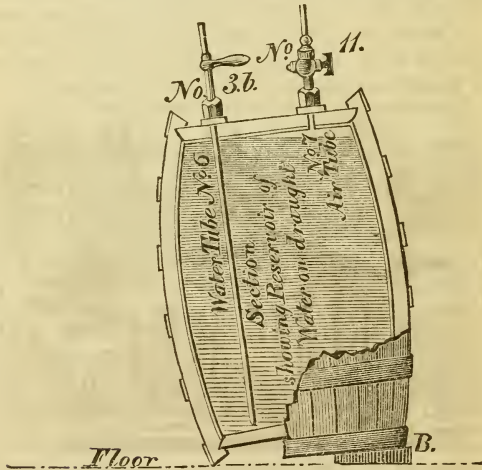 No. 3.b.
No. 11.
Water Tube No. 6
Section
showing Reservoir of
Water on draught
No. 7
Air Tube
B.
Floor